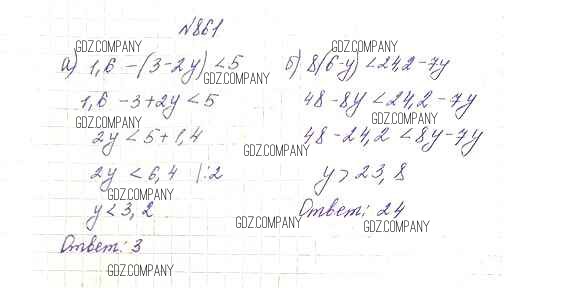 №861
GDZ.COMPANY
GDZ.COMPANY
а) 1,6 - (3-2y) < 5
GDZ.COMPANY
1,6 - 3 + 2y < 5
GDZ.COMPANY
2y < 5 + 1,4
2y < 6,4 |:2
GDZ.COMPANY
y < 3,2
Ответ: 3
GDZ.COMPANY
б) 8(6-y) < 24,2 - 7y
48 - 8y < 24,2 - 7y
GDZ.COMPANY
48 - 24,2 < 8y - 7y
GDZ.COMPANY
y > 23,8
Ответ: 24
GDZ.COMPANY
GDZ.COMPANY